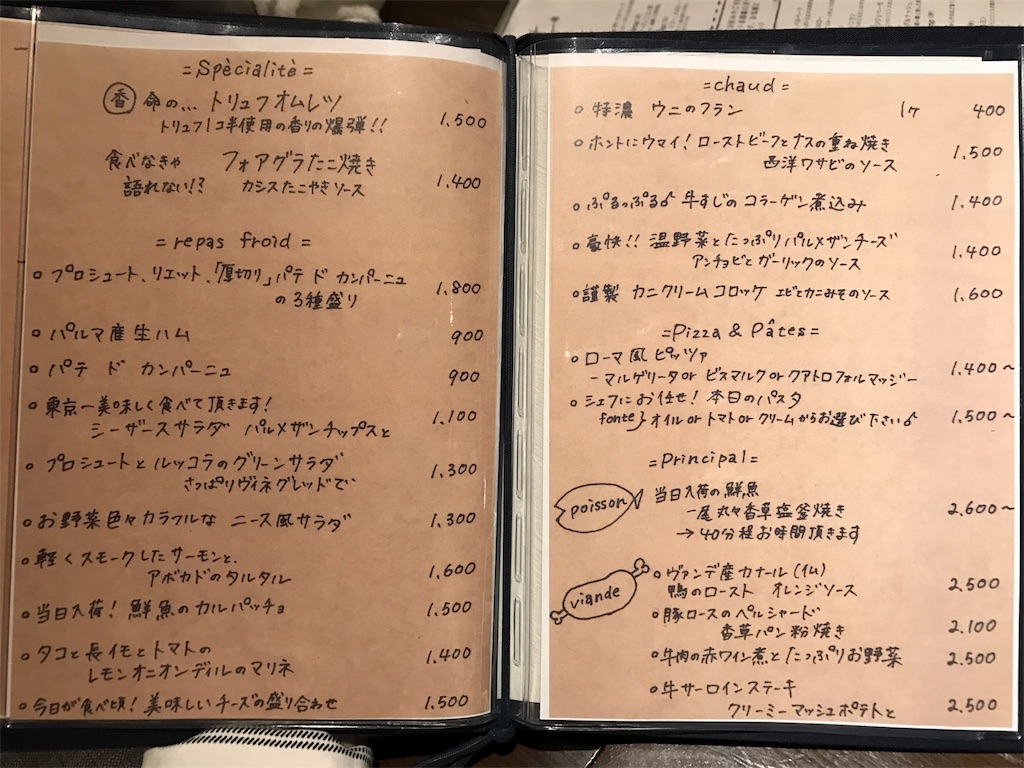 =Spècialitè=
香 命の... トリュフオムレツ 1,500
トリュフ1コ半使用の香りの爆弾!!
食べなきゃ フォアグラたこ焼き
語れない!? カシスたこやきソース 1,400
=repas froid=
○プロシュート、リエット、「厚切り」パテ ド カンパーニュ
の3種盛り 1,800
○パルマ産生ハム 900
○パテ ド カンパーニュ 900
○東京一美味しく食べて頂きます!
シーザースサラダ パルメザンチップスと 1,100
○プロシュートとルッコラのグリーンサラダ
さっぱりヴィネグレッドで 1,300
○お野菜色々カラフルな ニース風サラダ 1,300
○軽くスモークしたサーモンと、
アボカドのタルタル 1,600
○当日入荷!鮮魚のカルパッチョ 1,500
○タコと長イモとトマトの
レモンオニオンディルのマリネ 1,400
○今日が食べ頃!美味しいチーズの盛り合わせ 1,500
=chaud=
○特濃 ウニのフラン 1ヶ 400
○ホントにウマイ!ローストビーフとナスの重ね焼き
西洋ワサビのソース 1,500
○ぷるっぷる♪牛すじのコラーゲン煮込み 1,400
○豪快!!温野菜とたっぷりパルメザンチーズ
アンチョビとガーリックのソース 1,400
○謹製 カニクリームコロッケ エビとカニみそのソース 1,600
=Pizza & Pâtes=
○ローマ風ピッツァ
ーマルゲリータor ビスマルクor クアトロフォルマッジー 1,400~
○シェフにお任せ!本日のパスタ
fonte}オイル or トマト or クリームからお選び下さい♪ 1,500~
=Principal=
poisson 当日入荷の鮮魚
一尾丸々香草塩釜焼き 2,600~
→40分程お時間頂きます
viande ○ヴァンデ産カナール(仏)
鴨のロースト オレンジソース 2,500
○豚ロースのペルシャード
香草パン粉焼き 2,100
○牛肉の赤ワイン煮とたっぷりお野菜 2,500
○牛サーロインステーキ
クリーミーマッシュポテトと 2,500